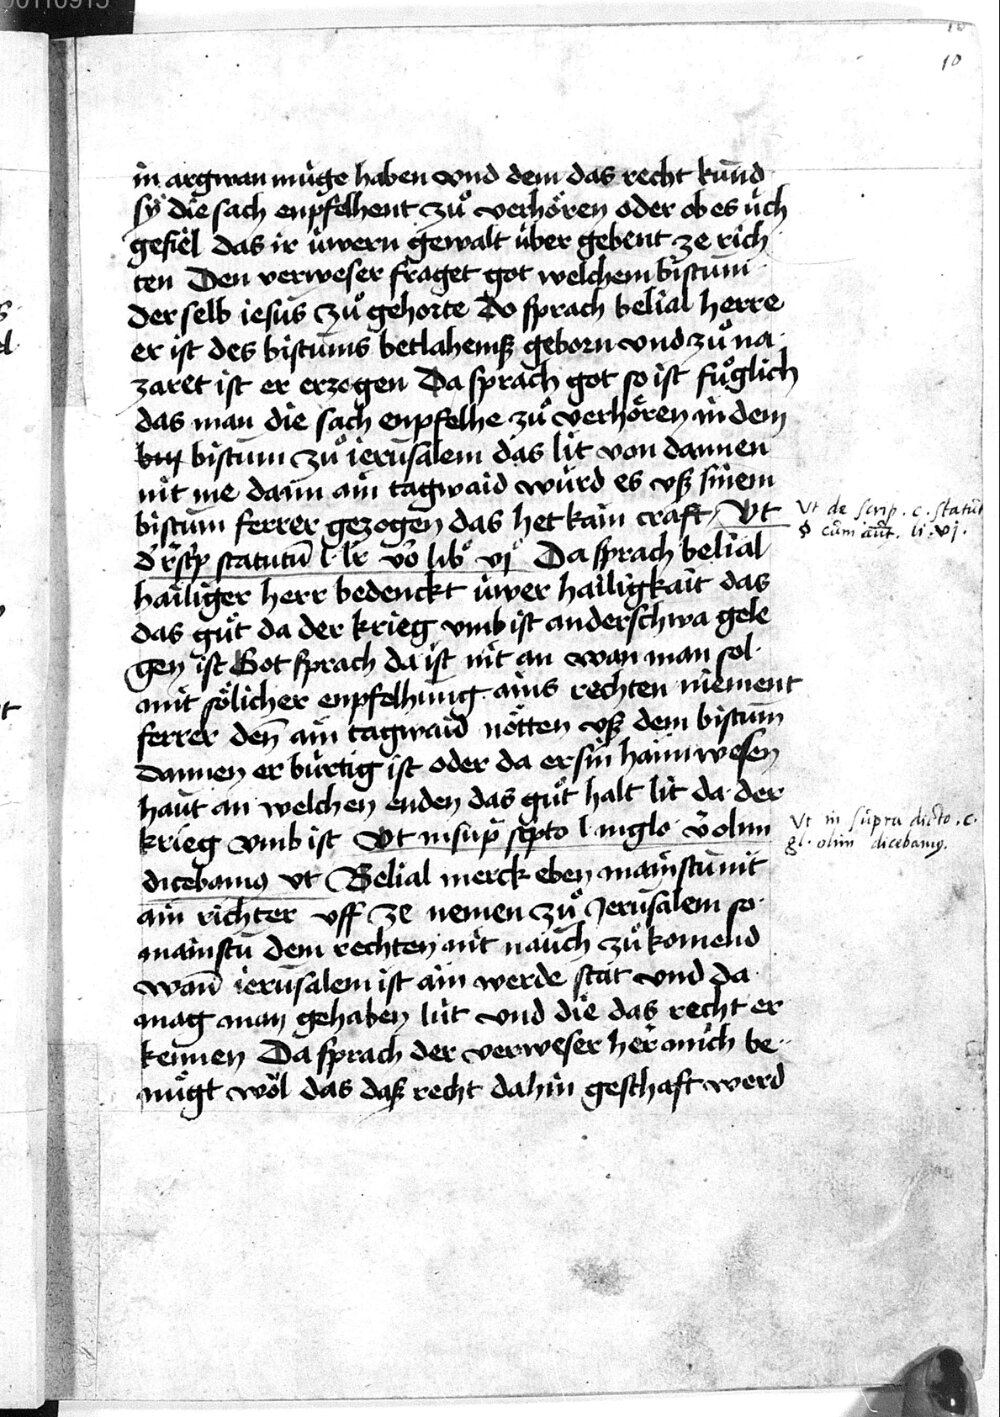 10
in argwan müge haben vnd dem das recht kund
sÿ die sach enpfelhent zů verhören oder ob es üch
gefiel das ir üwern gewalt über gebent ze rich
ten Den verweser fraget got welchem bistum
der selb iesus zů gehorte Do sprach belial herre
er ist des bistums betlahemß geborn vnd zů na
zaret ist er erzogen Da sprach got so ist fůglich
das man die sach enpfelhe zů verhören in dem
bistum zů ierusalem das lit von dannen
nit me dann ain tagwaid würd es vß sinem
bistum ferrer gezogen das het kain craft Vt
statutū lib vj Da sprach belial
hailiger herr bedenckt üwer hailigkait das
das gůt da der krieg vmb ist anderschwa gele
gen ist Got sprach da ist nit an wan man sol
mit sölicher enpfelhung ains rechten niement
ferrer den̄ ain tagwaid nötten vß dem bistum
dannen er bürtig ist oder da er sin haimwesen
haut an welchen enden das gůt halt lit da der
krieg vmb ist Vt in sup̄ olim
dicebamus vt Belial merck eben mainstu nit
ain richter vff ze nemen zů Jerusalem so
mainstu dem rechten nit nauch zů komend
wan̄ ierusalem ist ain werde stat vnd da
mag man gehaben lüt vnd die das recht er
kennen Da sprach der verweser her mich be
nůgt wol das daß recht dahin geschaft werd
Vt de scrip. c. statutū
cum aūt. li. vj.
Vt in supra dicto. c.
gl. olim dicebamus.